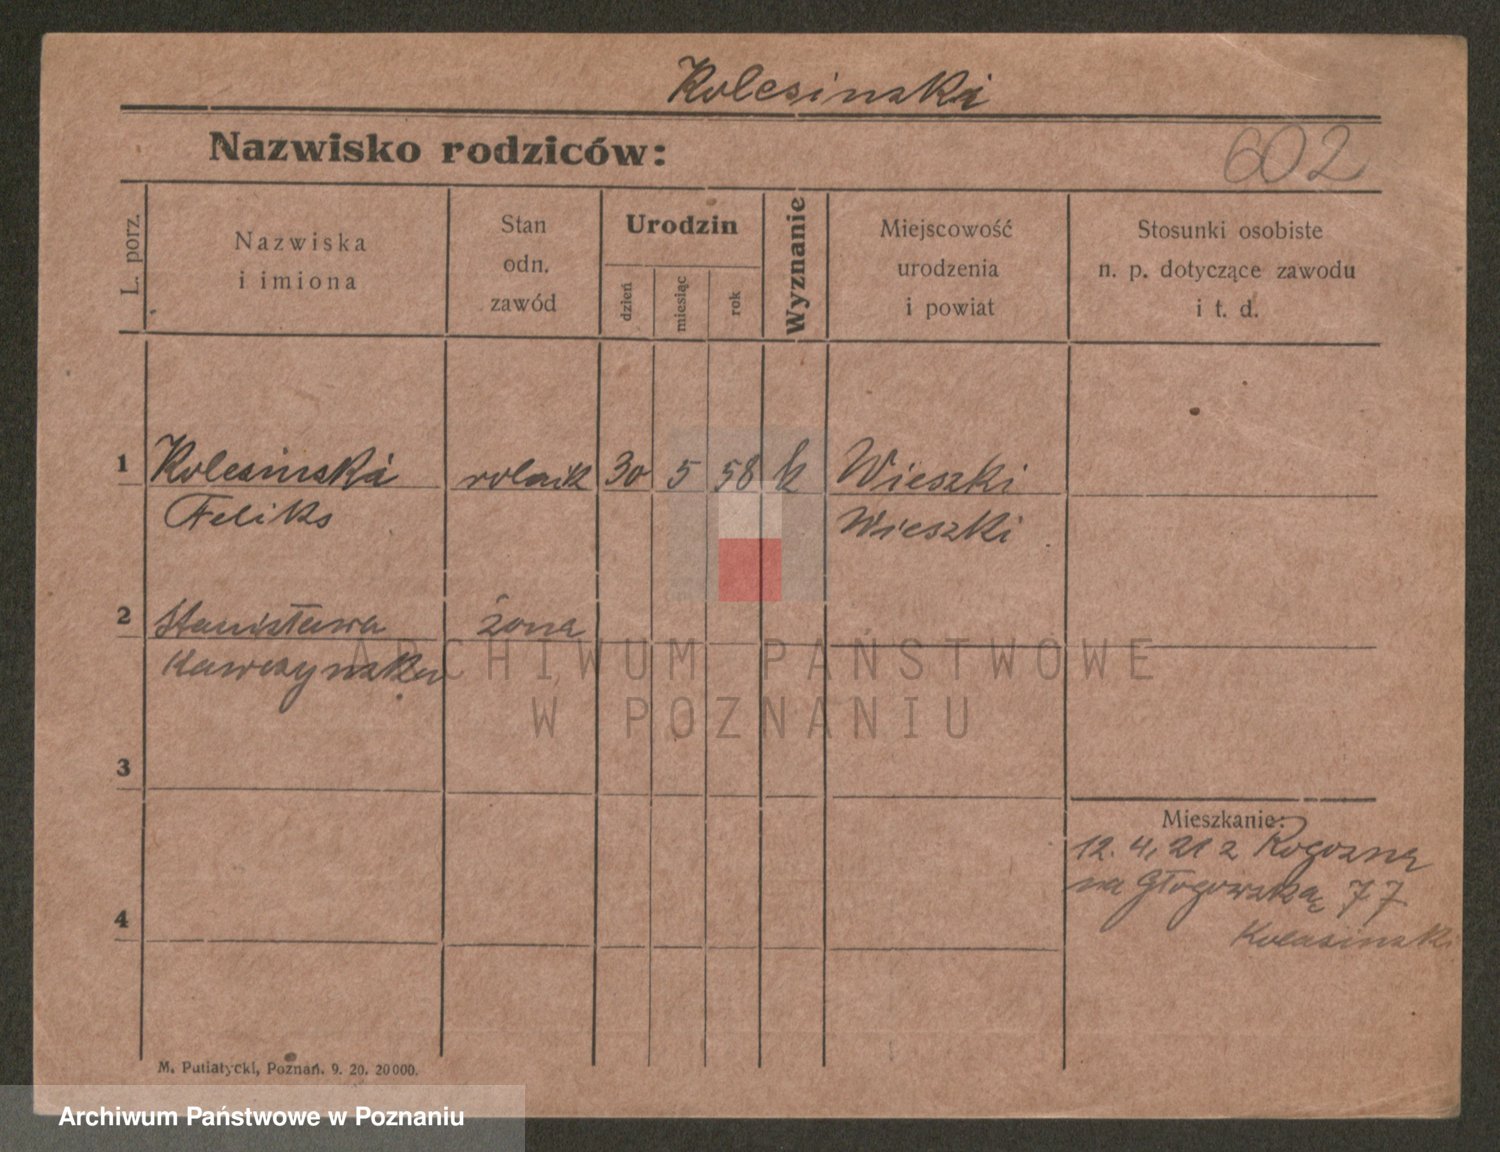 Kolesinski
Nazwisko rodziców:
602
L. porz.
Nazwiska
i imiona
Stan
odn.
zawód
Urodzin
dzień
miesiąc
rok
Wyznanie
Miejscowość
urodzenia
i powiat
Stosunki osobiste
n. p. dotyczące zawodu
i t. d.
1 Kolesinski rolnik 30 5 58 k Wieszki
Feliks Wieszki
2 Stanisława żona
Kawczynska
ARCHIWUM PAŃSTWOWE
W POZNANIU
3
Mieszkanie:
12. 4. 21 z Rogozna
na Głogowską 77
4
Kolasinski
M. Putiatycki, Poznań. 9. 20. 20000.
Archiwum Państwowe w Poznaniu